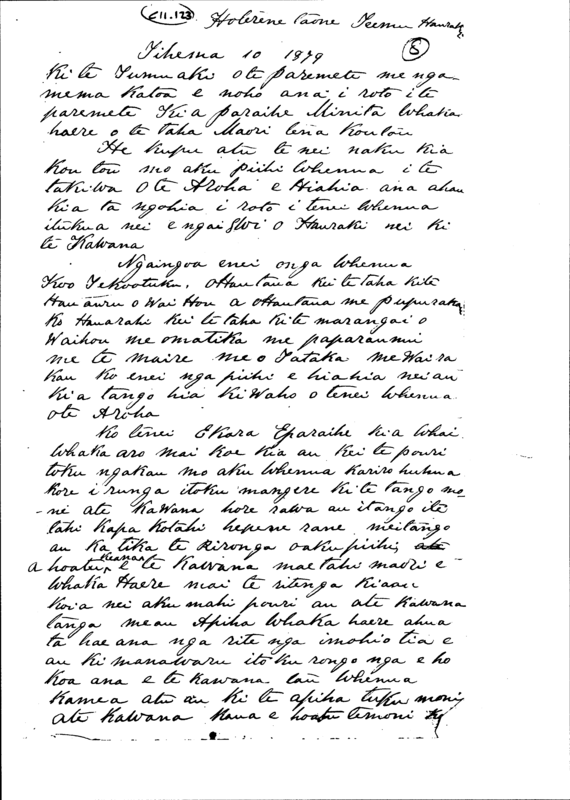 C11.123 Holerene Tāone Teemu Hauraki
Tihema 10 1879 (8)
Ki te Tumuaki o te paremete me nga
mema katoa e noho ana i roto i te
paremete Kia paraihe Minita whaka
haere o te taha Maori tena koutou
He kupu atu te nei naku kia
kou tou mo aku piihi whenua i te
takiwa o te Aroha e Hiahia ana ahau
kia ta ngohia i roto i tenei whenua
itukua nei e nga iwi o Hauraki nei ki
te Kawana
Ngaingoa enei onga whenua
Koo Tekootuku, ohautaua kei te taha kite
Hauāuru o Wai Hou a ohautaua me pupuraka
ko Huuarahi kei te taha kite marangai o
Waihou me omatika me paparaumui
me te maire me o Tataka me Waira
kau ko enei nga piihi e hiahia nei au
kia tango hia ki Waho o tenei whenua
ote Aroha
Ko tenei Ekara Eparaihe kia whai
whaka aro mai koe kia au kei te pouri
toku ngakau mo aku whenua kariro huhua
kore i runga itoku mangere kite tango mo
-ni ate Kawana hore rawa au itango ite
tahi kapa kotahi hepene rane meitango
au ka tika te Rironga oaku piihi ate
a hoatu kianau e te Kawana mae tahi maori e
whaka Haere mai te ritenga kiaau
koia nei aku mahi pouri au ate Kawana
tānga meau Apiha whaka haere ahua
ta hae ana nga rite nga imohio tia e
au ki manawaru itoku rongo nga e ho
koa ana e te kawana tau whenua
kamea atu au ki te apiha tuku moni
ate Kawana kaua e hoatu temoni ki